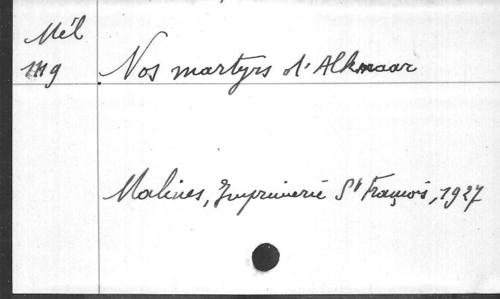 Mél
119 Nos martyrs d'Alkmaar
Malines, Imprimerie St François, 1927